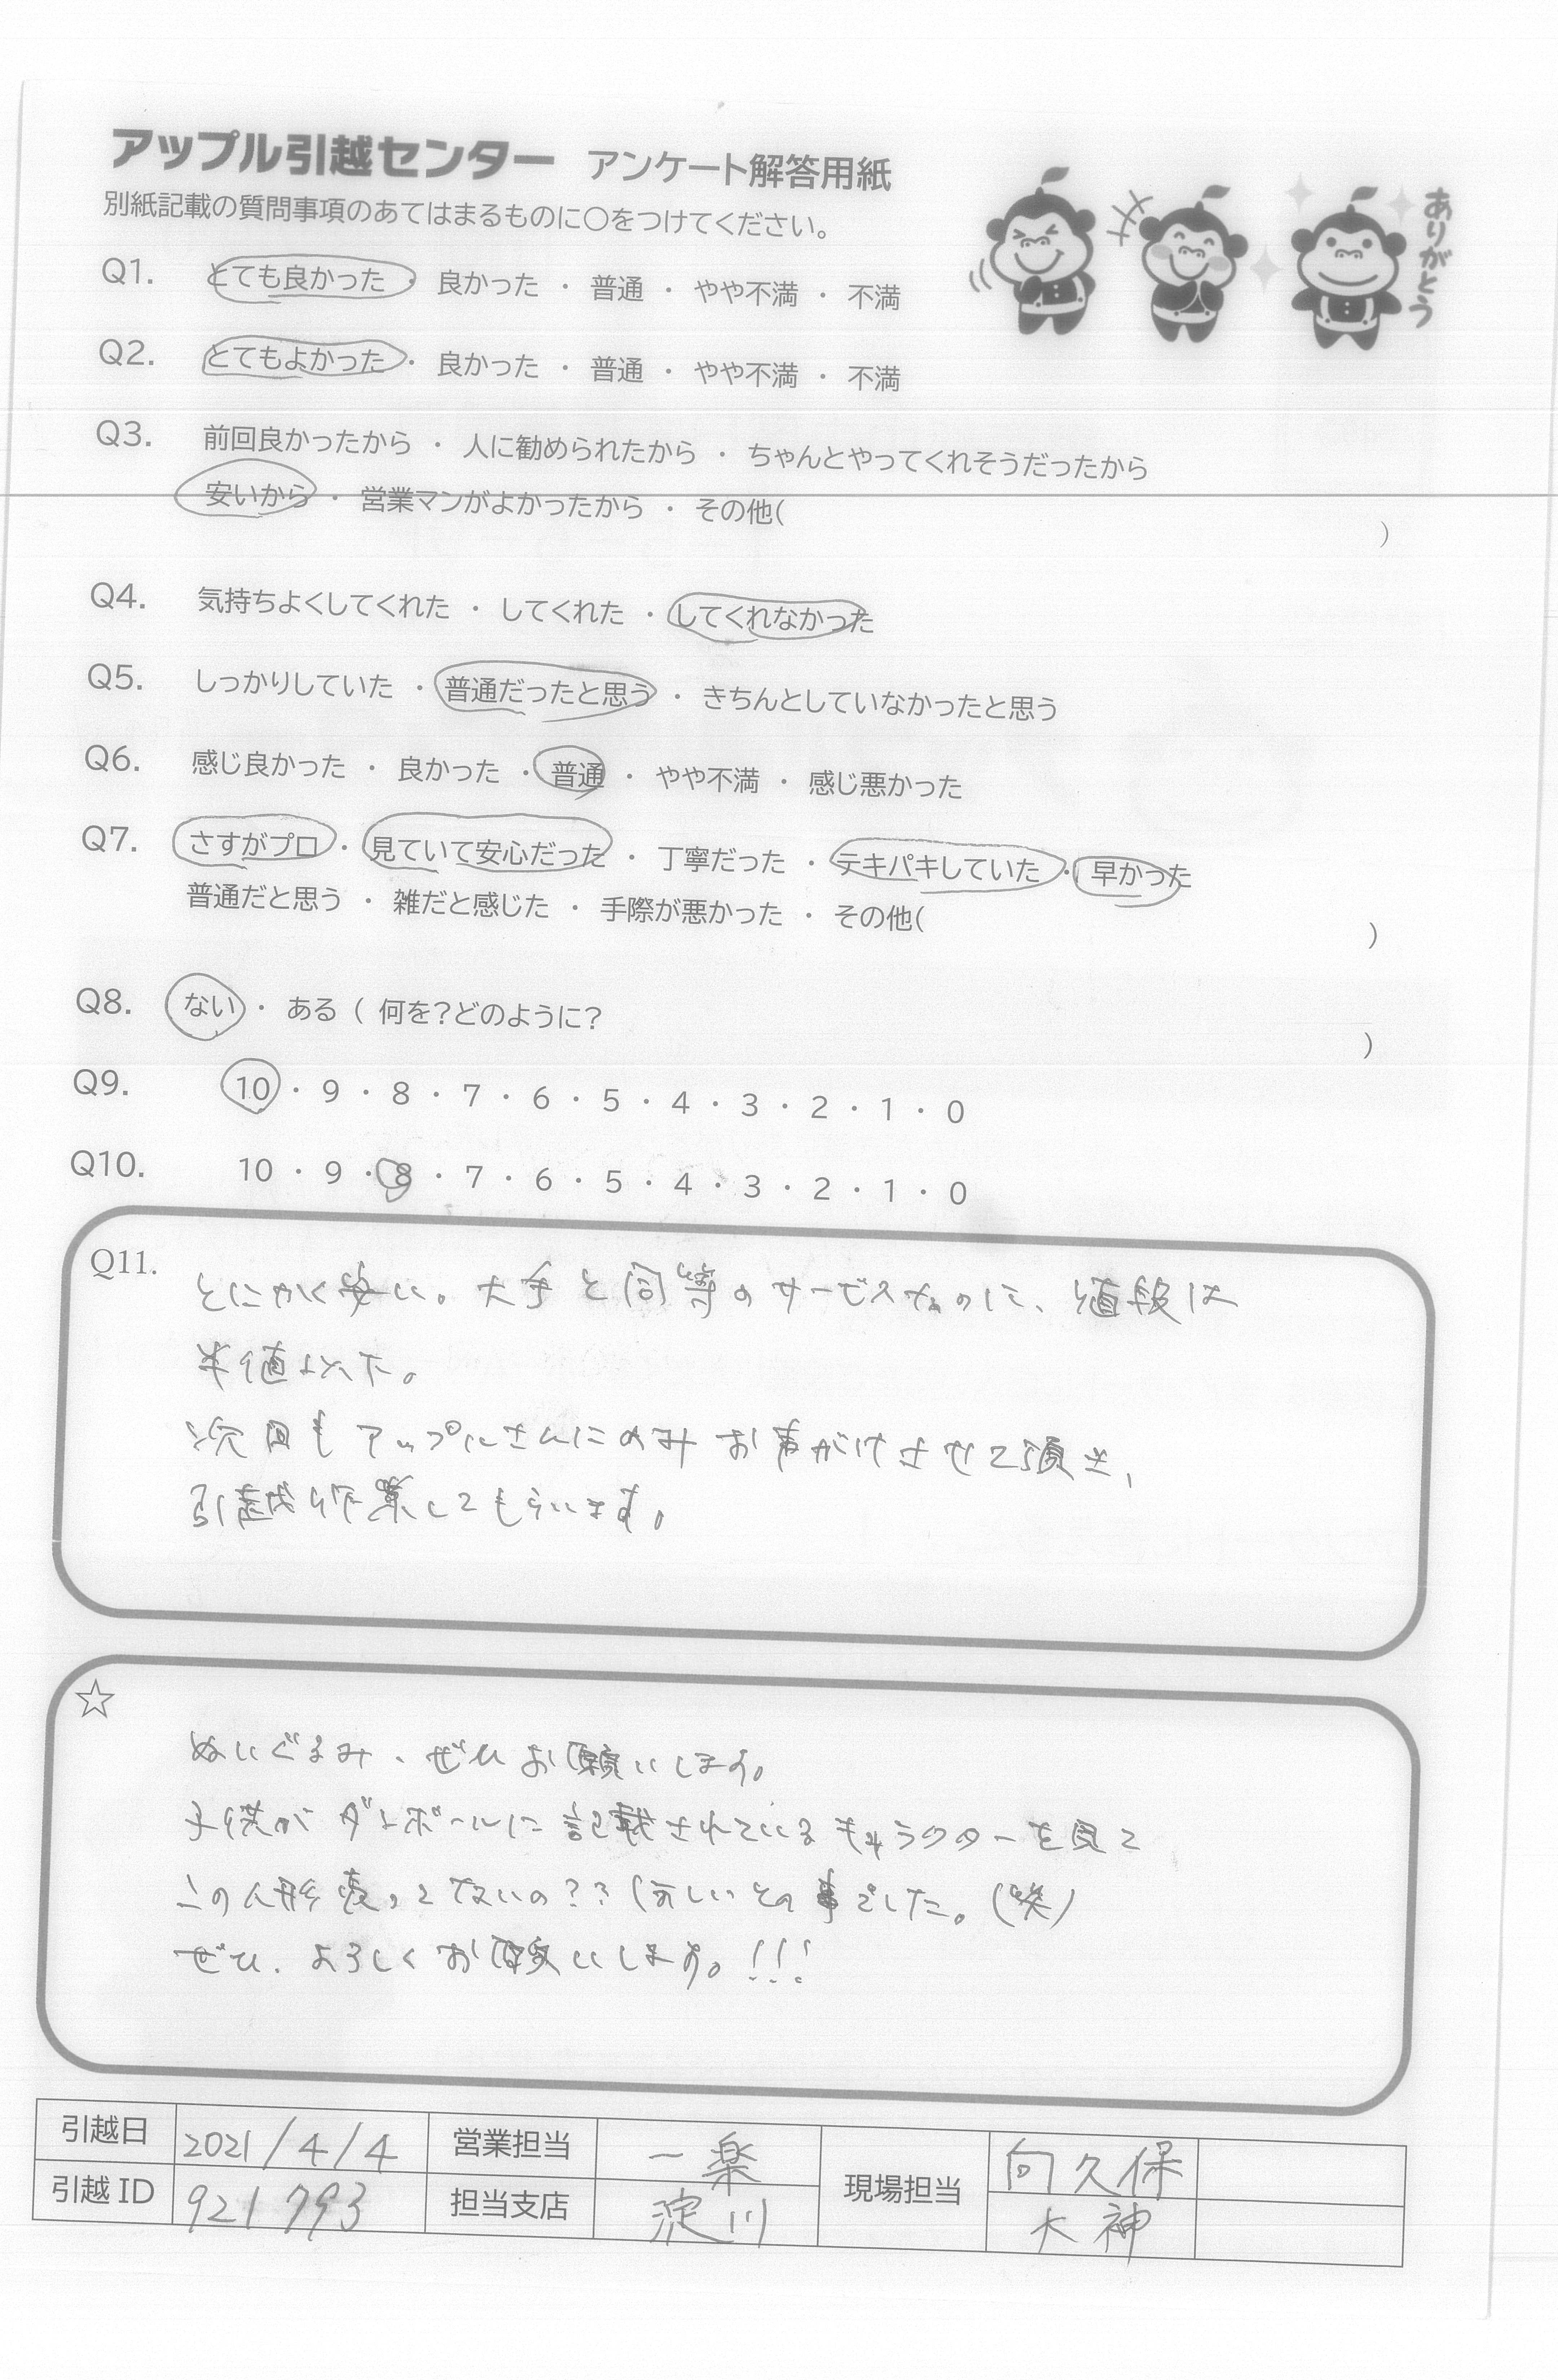 アップル引越センター アンケート解答用紙
別紙記載の質問事項のあてはまるものに○をつけてください。
ありがとう
Q1. とても良かった ・ 良かった ・ 普通 ・ やや不満 ・ 不満
Q2. とてもよかった ・ 良かった ・ 普通 ・ やや不満 ・ 不満
Q3. 前回良かったから ・ 人に勧められたから ・ ちゃんとやってくれそうだったから
安いから ・ 営業マンがよかったから ・ その他( )
Q4. 気持ちよくしてくれた ・ してくれた ・ してくれなかった
Q5. しっかりしていた ・ 普通だったと思う ・ きちんとしていなかったと思う
Q6. 感じ良かった ・ 良かった ・ 普通 ・ やや不満 ・ 感じ悪かった
Q7. さすがプロ ・ 見ていて安心だった ・ 丁寧だった ・ テキパキしていた ・ 早かった
普通だと思う ・ 雑だと感じた ・ 手際が悪かった ・ その他( )
Q8. ない ・ ある ( 何を?どのように? )
Q9. 10 ・ 9 ・ 8 ・ 7 ・ 6 ・ 5 ・ 4 ・ 3 ・ 2 ・ 1 ・ 0
Q10. 10 ・ 9 ・ 8 ・ 7 ・ 6 ・ 5 ・ 4 ・ 3 ・ 2 ・ 1 ・ 0
Q11. とにかく安い。大手と同等のサービスなのに、値段は
半値以下。
次回もアップルさんにのみお声がけさせて頂き、
引越作業してもらいます。
☆
ぬいぐるみ、ぜひお願いします。
子供がダンボールに記載されているキャラクターを見て
この人形売ってないの??ほしいとの事でした。(笑)
ぜひ、よろしくお願いします。!!!
引越日 2021/4/4 営業担当 一楽 現場担当 向久保
引越ID 921793 担当支店 淀川 大神